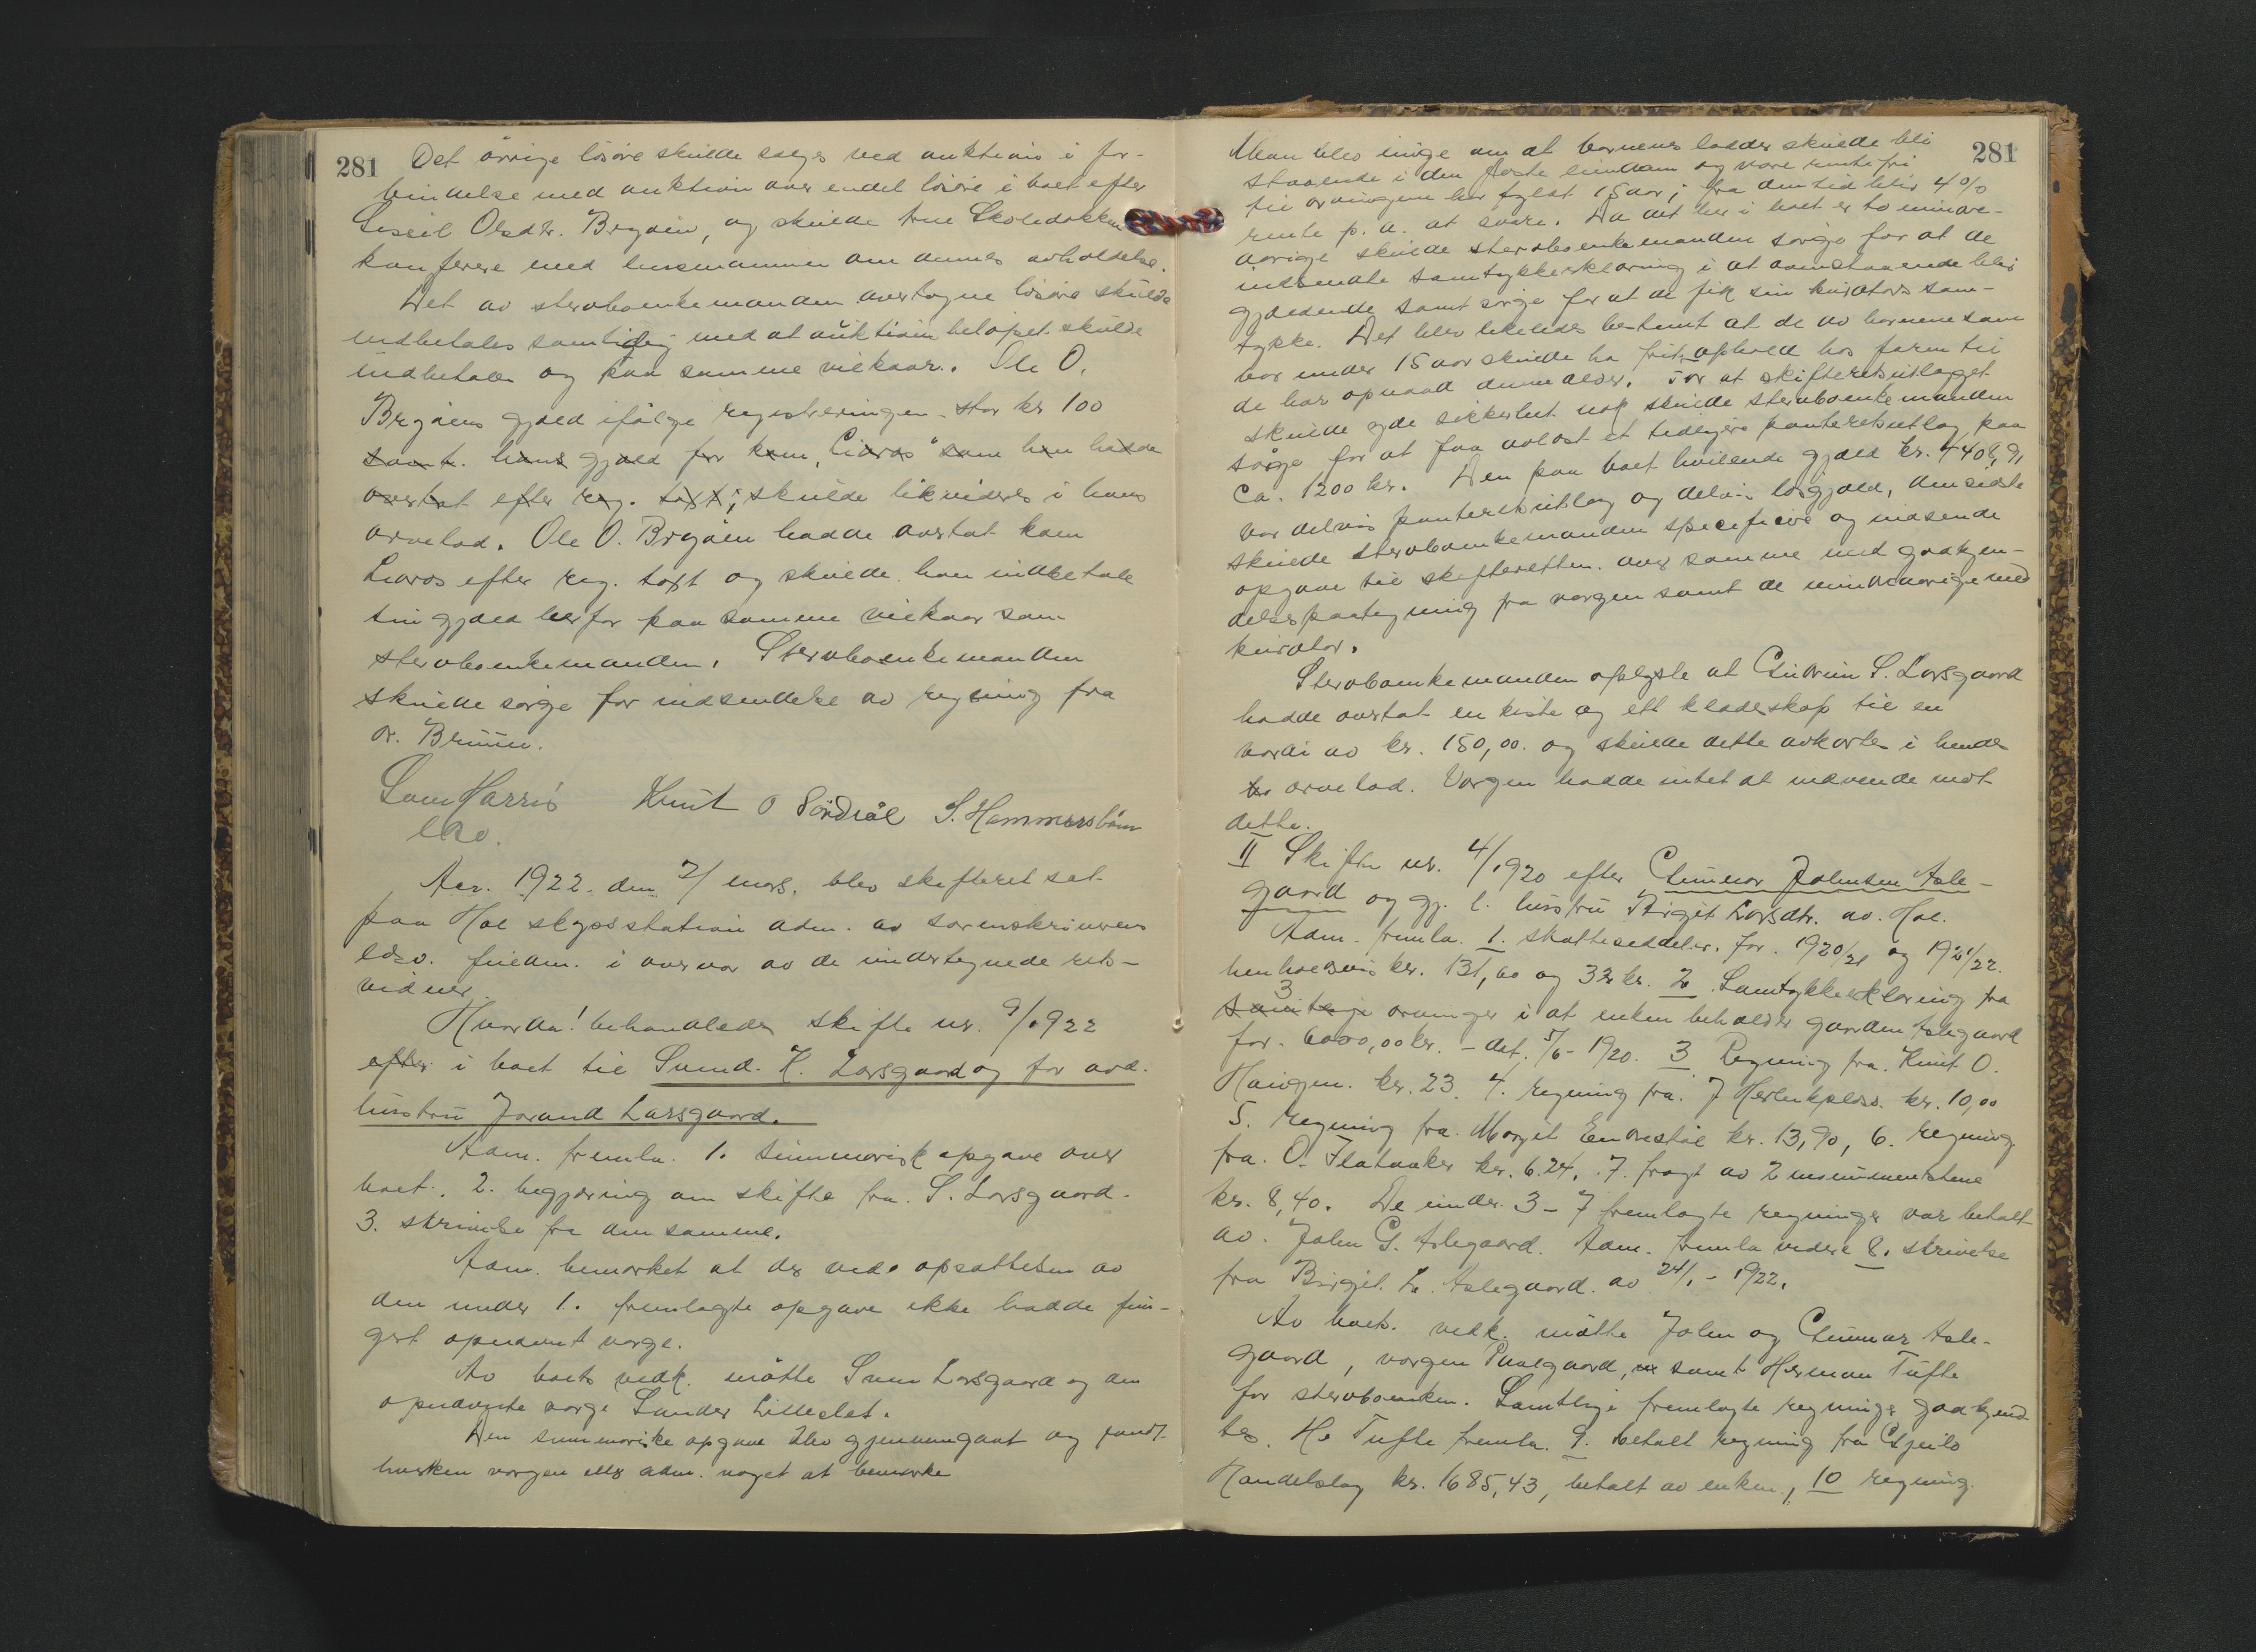 281
Det øvrige løsøre skulde selges ved auktion i for-
bindelse med auktion over endel løsøre i boet efter
Sissil Olsdtr. Brøien, og skulde frue Skoledokken
konferere med lensmannen om dennes avholdelse.
Det av sterboenkemanden overtagne løsøre skulde
indbetales samtidig med at auktionsbeløpet skulde
indbetales og paa samme vilkaar. Ole O.
Brøiens gjæld ifølge registreringen stor kr 100
samt hans gjæld for kum „Liaros“ som han hadde
overtat efter reg. taxt; skulde likvideres i hans
arvelod. Ole O. Brøien hadde overtat kuen
Liaros efter reg. taxt og skulde han indbetale
sin gjæld herfor paa samme vilkaar som
sterboenkemanden. Sterboenkemanden
skulde sørge for indsendelse av regning fra
dr. Bruun.
Sam Harris Knut O Sørdøl S. Hammersbøen
edsv.
Aar 1922 den 7/ mars. blev skifteret sat
paa Hol skysstation adm. av sorenskriverens
edsv. fuldm. i overvær av de undertegnede rets-
vidner.
Hvorda! behandledes skifte nr. 9/1922
efter i boet til Svend. K. Larsgaard og for avd.
hustru Jorand Larsgaard.
Adm. fremla. 1. Summarisk opgave over
boet. 2. begjæring om skifte fra S. Larsgaard.
3. skrivelse fra den samme.
Adm. bemerket at der ved opsættelsen av
den under 1. fremlagte opgave ikke hadde fun-
gert opnævnt verge.
Av boets vedk. møtte Svend Larsgaard og den
opnævnte verge Sander Lilleslet.
Den summariske opgave blev gjennemgaat og fandt
hverken vergen eller adm. noget at bemerke
281
Man blev enige om at børnenes lodder skulde bli
staaende i den faste eiendom og være rentefri
til arvingene har fylt 15 aar; fra den tid blir 4%
rente p. a. at svare. Da det her i boet er to mindre-
aarige skulde sterboenkemanden sørge for at de
indsendte samtykkeerklæring i at ovenstaaende blir
gjældende samt sørge for at de fik sin kurators sam-
tykke. Det blev likeledes bestemt at de av børnene som
var under 15 aar skulde ha frit ophold hos faren til
de har opnaad denne alder. For at skifteretsutlægget
skulde yde sikkerhet nok skulde sterboenkemanden
sørge for at faa avløst et tidligere panteretsutlæg paa
Ca. 1200 kr. Den paa boet hvilende gjæld kr. 4408,91
var delvis panteretsutlæg og delvis løsgjæld, den sidste
skulde sterboenkemanden specificere og indsende
opgave til skifteretten over samme med godkjen-
delsespaategning fra vergen samt de mindreaarige med
kurator.
Sterboenkemanden oplyste at Gudrun S. Larsgaard
hadde overtat en kiste og ett klædeskap til en
værdi av kr. 150,00. og skulde dette avkortes i hendes
arvelod. Vergen hadde intet at indvende mot
dette.
II Skifte nr. 4/1920 efter Gunnar Johnsen Asle-
gaard og gj. l. hustru Birgit Larsdtr. av Hol.
Adm. fremla. 1. skattesedler. for. 1920/21 og 1921/22.
henholdsvis kr. 131,60 og 32 kr. 2. Samtykkeerklæring fra
3
samtlige arvinger i at enken beholder gaarden Aslegaard
for 6000,00 kr. - dat. 5/6 - 1920. 3 Regning fra Knut O.
Haugen. kr. 23. 4. regning fra. J Herleikplass. kr. 10,00
5. Regning fra. Margit Endrestøl kr. 13,90, 6. regning
fra. O. Flataaker kr. 6.24. 7. fragt av 2 monumentstene
kr. 8,40. De under 3 - 7 fremlagte regninger var betalt
av John G. Aslegaard. Adm. fremla videre 8. skrivelse
fra Birgit L. Aslegaard av 24/1 - 1922.
Av boets vedk. møtte John og Gunnar Asle-
gaard, vergen Paalgaard, samt Herman Tufte
for sterboenken. Samtlige fremlagte regninger godkjend-
tes. H. Tufte fremla. 9. betalt regning fra Gjeilo
Handelslag kr. 1685,43, betalt av enken, 10 regning